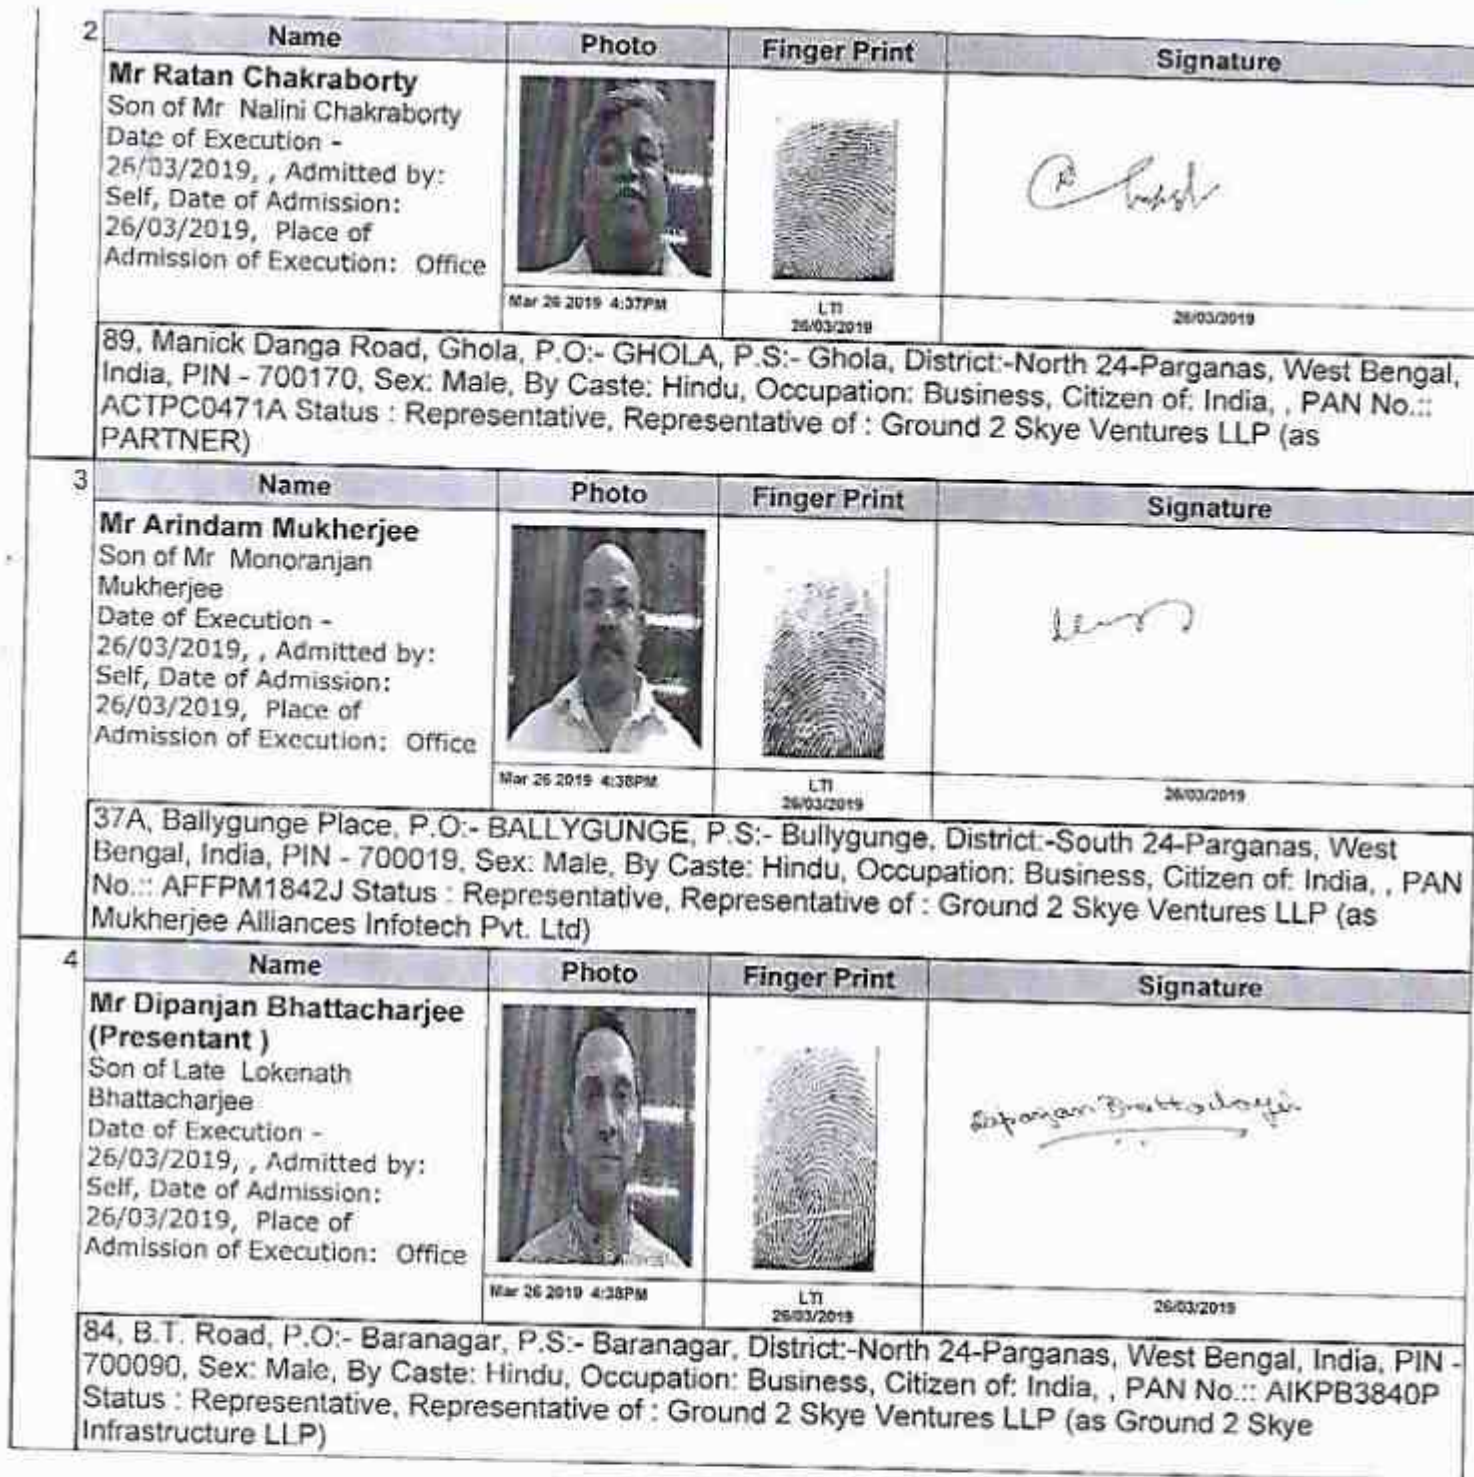 2
Name Photo Finger Print Signature
Mr Ratan Chakraborty
Son of Mr Nalini Chakraborty
Date of Execution -
26/03/2019, , Admitted by:
Self, Date of Admission:
26/03/2019, Place of
Admission of Execution: Office
Mar 26 2019 4:37PM
LTI
26/03/2019
26/03/2019
89, Manick Danga Road, Ghola, P.O:- GHOLA, P.S:- Ghola, District:-North 24-Parganas, West Bengal,
India, PIN - 700170, Sex: Male, By Caste: Hindu, Occupation: Business, Citizen of: India, , PAN No.::
ACTPC0471A Status : Representative, Representative of : Ground 2 Skye Ventures LLP (as
PARTNER)
3
Name Photo Finger Print Signature
Mr Arindam Mukherjee
Son of Mr Monoranjan
Mukherjee
Date of Execution -
26/03/2019, , Admitted by:
Self, Date of Admission:
26/03/2019, Place of
Admission of Execution: Office
Mar 26 2019 4:38PM
LTI
26/03/2019
26/03/2019
37A, Ballygunge Place, P.O:- BALLYGUNGE, P.S:- Bullygunge, District:-South 24-Parganas, West
Bengal, India, PIN - 700019, Sex: Male, By Caste: Hindu, Occupation: Business, Citizen of: India, , PAN
No.:: AFFPM1842J Status : Representative, Representative of : Ground 2 Skye Ventures LLP (as
Mukherjee Alliances Infotech Pvt. Ltd)
4
Name Photo Finger Print Signature
Mr Dipanjan Bhattacharjee
(Presentant )
Son of Late Lokenath
Bhattacharjee
Date of Execution -
26/03/2019, , Admitted by:
Self, Date of Admission:
26/03/2019, Place of
Admission of Execution: Office
Mar 26 2019 4:38PM
LTI
26/03/2019
26/03/2019
84, B.T. Road, P.O:- Baranagar, P.S:- Baranagar, District:-North 24-Parganas, West Bengal, India, PIN -
700090, Sex: Male, By Caste: Hindu, Occupation: Business, Citizen of: India, , PAN No.:: AIKPB3840P
Status : Representative, Representative of : Ground 2 Skye Ventures LLP (as Ground 2 Skye
Infrastructure LLP)